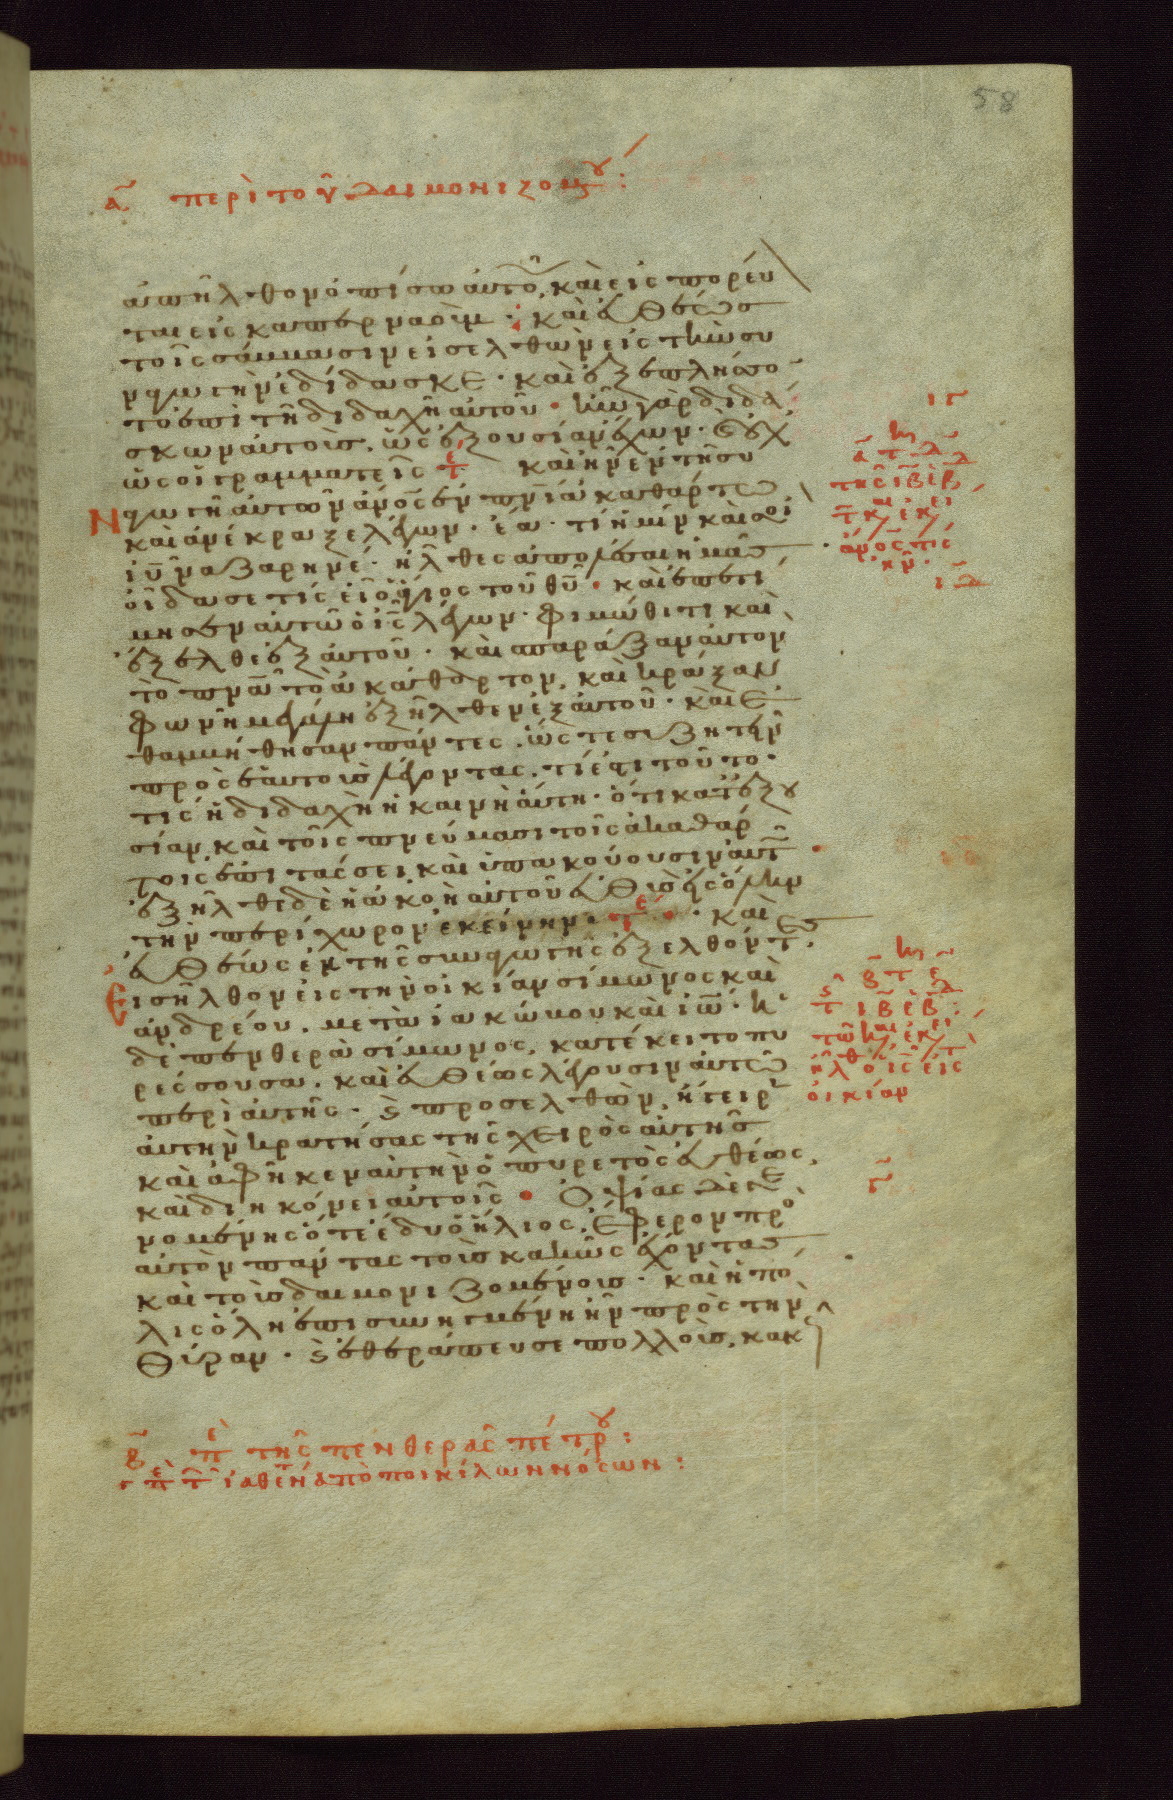 58
α̅ περὶ τοῦ δαιμονιζομ ου:
ἀπῆλθον ὀπίσω αὐτοῦ. καὶ εἰσπορεύο
ται εἰς καπερναοὺμ· καὶ εὐθέως
τοῖς σάββασιν εἰσελθὼν εἰς τὴν συ
ναγωγὴν ἐδίδασκε· καὶ ἐξεπλήσσο
το ἐπὶ τῇ διδαχῇ αὐτοῦ· ἦν γὰρ διδά
σκων αὐτοὺς, ὡς ἐξουσίαν ἔχων· καὶ οὐχ
ὡς οἱ γραμματεῖς τε καὶ ἦν ἐν τῇ συ
ναγωγῇ αὐτῶν ἄνος ἐν πνι ἀκαθάρτω
καὶ ἀνέκραξε λέγων· ἔα· τί ἡμῖν καὶ σοὶ
ιῦ ναζαρηνέ· ἦλθες ἀπολέσαι ἡμᾶς
οἶδα σε τίς εἶ ὁ ἅγιος τοῦ θῦ· καὶ ἐπετί
μησεν αὐτῶ ὁ ις λέγων· φιμώθητι καὶ
ἔξελθε ἐξ αὐτοῦ· καὶ σπαράξαν αὐτὸν
τὸ πνα τὸ ἀκάθαρτον, καὶ κράξαν
φωνῇ μεγάλη ἐξῆλθεν ἐξ αὐτοῦ· καὶ ἐ
θαμβήθησαν πάντες, ὥστε συζητεῖν
πρὸς ἑαυτοὺς λέγοντας, τί ἐστι τοῦτο·
τίς ἡ διδαχὴ ἡ καινὴ αὕτη· ὅτι κατ ἐξου
σίαν, καὶ τοῖς πνεύμασι τοῖς ἀκαθάρ
τοις ἐπιτάσσει, καὶ ὑπακούουσιν αὐτῶ·
ἐξῆλθε δὲ ἡ ἀκοὴ αὐτοῦ εὐθὺς εἰς ὅλην
τὴν περίχωρον ἐκείνην· τε· καὶ
εὐθέως ἐκ τῆς συναγωγῆς ἐξελθόντες
εἰσῆλθον εἰς τὴν οἰκίαν σίμωνος καὶ
ἀνδρέου, μετὰ ἰακώβου καὶ ιω· ἡ
δὲ πενθερὰ σίμωνος, κατέκειτο πυ
ρέσσουσα. καὶ εὐθέως λέγουσιν αὐτῶ
περὶ αὐτῆς· καὶ προσελθὼν, ἤγειρεν
αὐτὴν κρατήσας τῆς χειρὸς αὐτῆς
καὶ ἀφῆκεν αὐτὴν ὁ πυρετὸς εὐθέως,
καὶ διηκόνει αὐτοῖς· Ὀψίας δὲ γε
νομένης ὅτε ἔδυ ὁ ἥλιος, ἔφερον προς
αὐτὸν πάντας τοὺς κακῶς ἔχοντας
καὶ τοὺς δαιμονιζομένους· καὶ ἡ πό
λις ὅλη ἐπισυνηγμένη ἦν πρὸς τὴν
θύραν· καὶ ἐθεράπευσε πολλοὺς, κακ
β̅ πε τῆς πενθερᾶς πέτρου:
γ πε τ ἰαθέντ ἀπὸ ποικίλων νόσων:
οἰκίαν